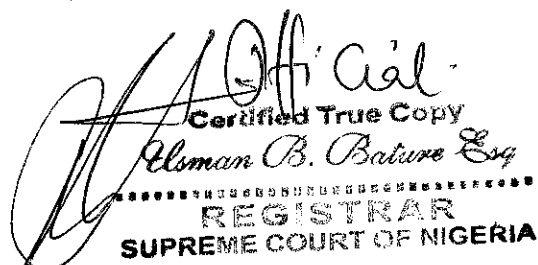 Official.
Certified True Copy
Usman B. Bature Esq
REGISTRAR
SUPREME COURT OF NIGERIA